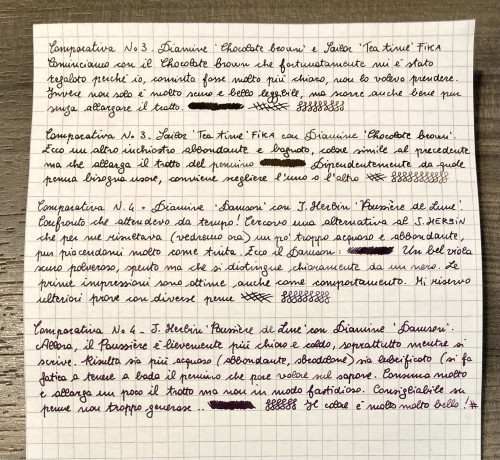 Comparativa No 3. Diamine 'Chocolate brown' e Sailor 'Tea time' FIKA
Cominciamo con il Chocolate brown che fortunatamente mi è stato
regalato perché io, convinta fosse molto più chiaro, non lo volevo prendere.
Invece non solo è molto scuro e bello leggibile, ma scorre anche bene pur
senza allargare il tratto.
Comparativa No 3. Sailor 'Tea time' FIKA con Diamine 'Chocolate brown'.
Ecco un altro inchiostro abbondante e bagnato, colore simile al precedente
ma che allarga il tratto del pennino Dipendentemente da quale
penna bisogna usare, conviene scegliere l'uno o l'altro
Comparativa N. 4 - Diamine 'Damson' con J. Herbin 'Poussière de Lune'.
Confronto che attendevo da tempo! Cercavo una alternativa al J. HERBIN
che per me risultava (vedremo ora) un po' troppo acquoso e abbondante,
pur piacendomi molto come tinta. Ecco il Damson: Un bel viola
scuro polveroso, spento ma che si distingue chiaramente da un nero. Le
prime impressioni sono ottime, anche come comportamento. Mi riservo
ulteriori prove con diverse penne
Comparativa No 4 - J. Herbin 'Poussière de Lune' con Diamine 'Damson'.
Allora, il Poussière è lievemente più chiaro e caldo, soprattutto mentre si
scrive. Risulta sia più acquoso (abbondante, sbrodolone) sia lubrificato (si fa
fatica a tenere a bada il pennino che pare volare sul sapone. Consuma molto
e allarga un poco il tratto ma non in modo fastidioso. Consigliabile su
penne non troppo generose .. Il colore è molto molto bello! #